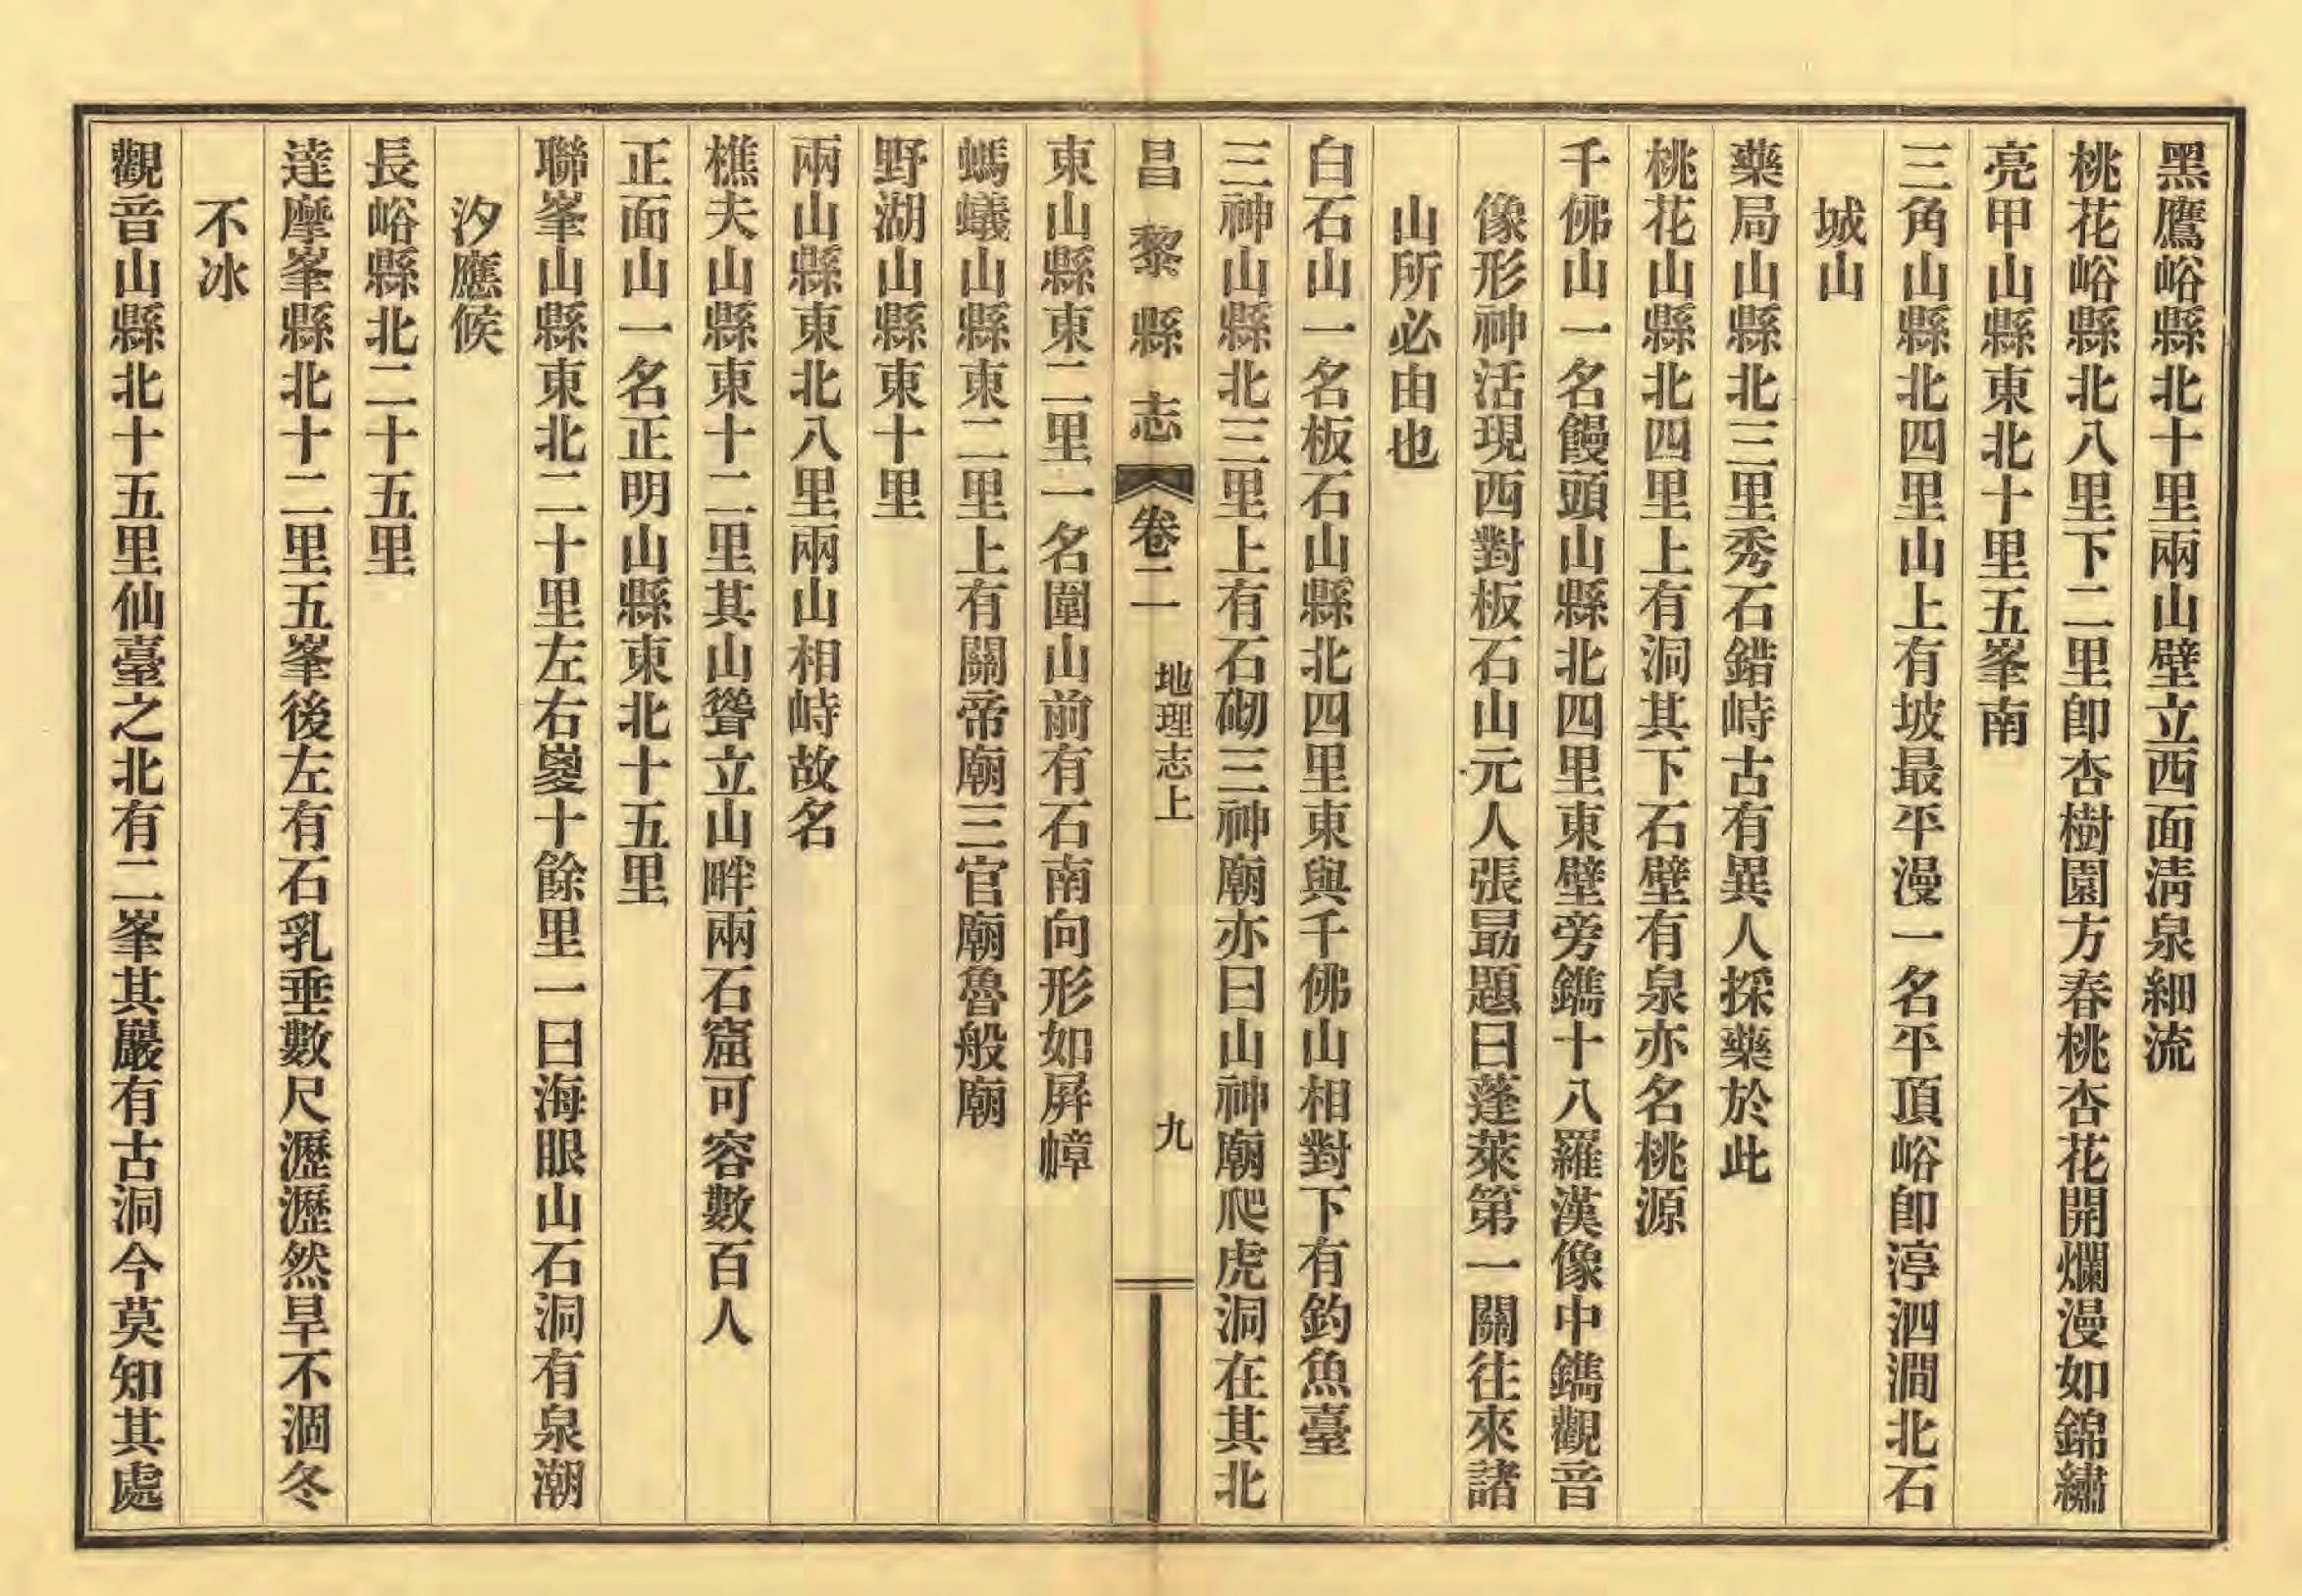 黑鷹峪縣北十里兩山壁立西面淸泉細流
桃花峪縣北八里下二里卽杏樹園方春桃杏花開爛漫如錦繡
亮甲山縣東北十里五峯南
三角山縣北四里山上有坡最平漫一名平頂峪卽渟泗澗北石
城山
藥局山縣北三里秀石錯峙古有異人採藥於此
桃花山縣北四里上有洞其下石壁有泉亦名桃源
千佛山一名饅頭山縣北四里東壁旁鐫十八羅漢像中鐫觀音
像形神活現西對板石山元人張勗題曰蓬萊第一關往來諸
山所必由也
白石山一名板石山縣北四里東與千佛山相對下有釣魚臺
三神山縣北三里上有石砌三神廟亦曰山神廟爬虎洞在其北
昌黎縣志 卷二 地理志上 九
東山縣東二里一名圍山前有石南向形如屛幛
螞蟻山縣東二里上有關帝廟三官廟魯般廟
野湖山縣東十里
兩山縣東北八里兩山相峙故名
樵夫山縣東十二里其山聳立山畔兩石窟可容數百人
正面山一名正明山縣東北十五里
聯峯山縣東北二十里左右嵏十餘里一曰海眼山石洞有泉潮
汐應候
長峪縣北二十五里
達摩峯縣北十二里五峯後左有石乳垂數尺瀝瀝然旱不涸冬
不冰
觀音山縣北十五里仙臺之北有二峯其巖有古洞今莫知其處